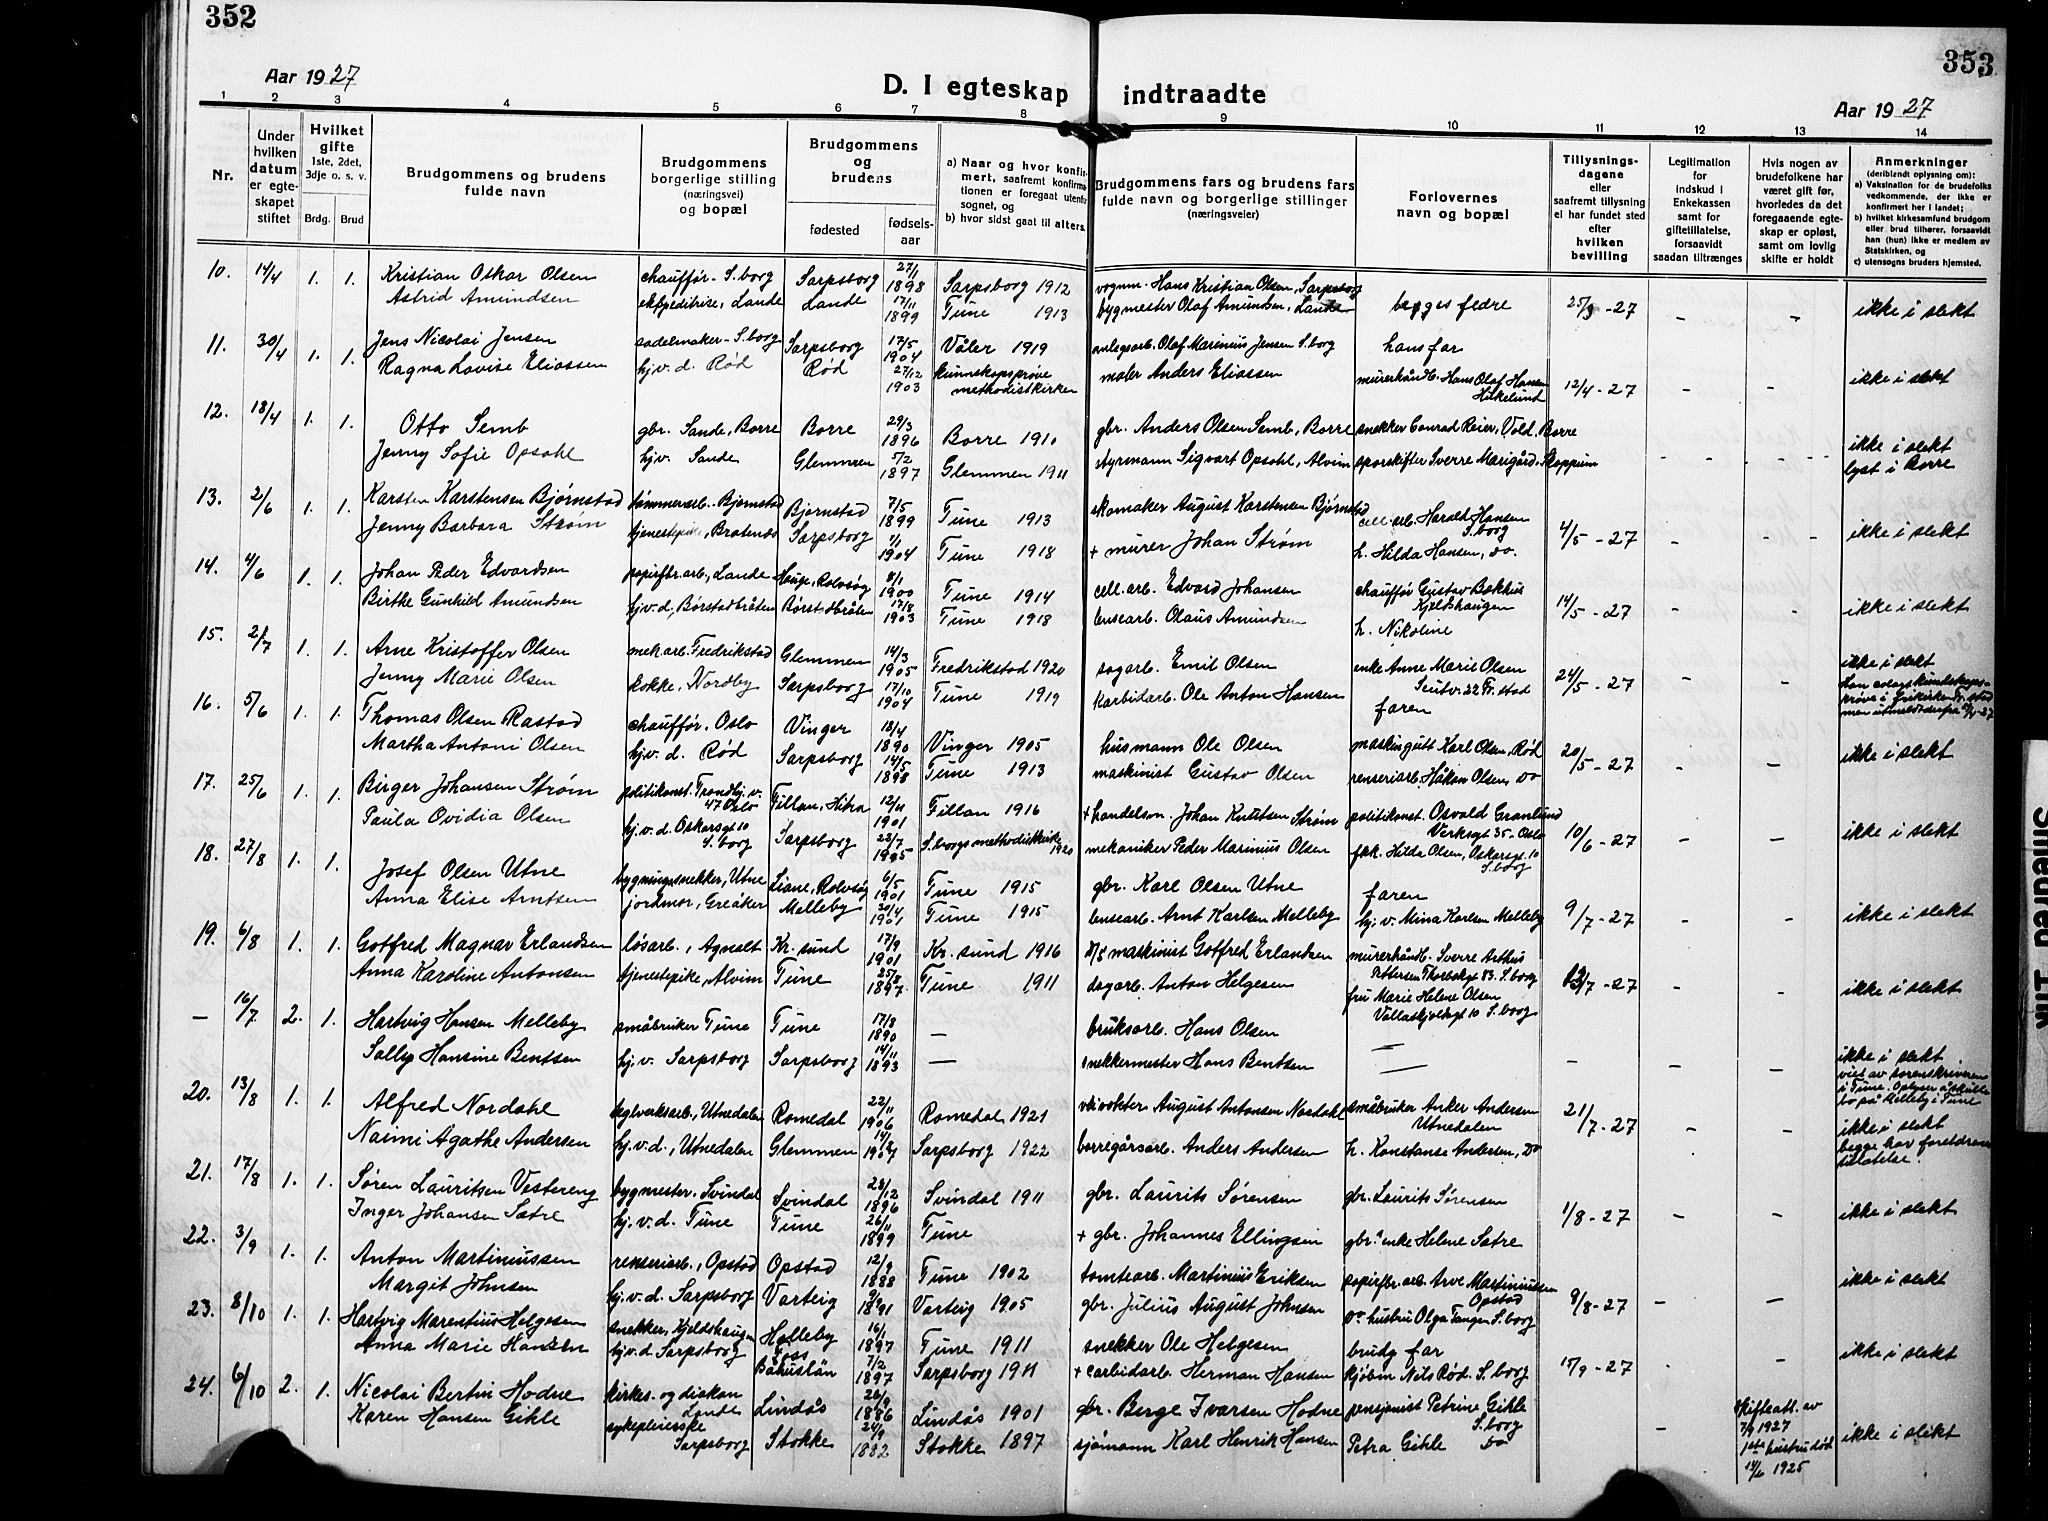 352
353
Aar 1927
D. I egteskap indtraadte
Aar 1927
1 2 3 4 5 6 7 8 9 10 11 12 13 14
Nr.
Under hvilken datum er egteskapet stiftet
Hvilket gifte 1ste, 2det, 3dje o. s. v.
Brdg. Brud
Brudgommens og brudens fulde navn
Brudgommens borgerlige stilling (næringsvei) og bopæl
Brudgommens og brudens
fødested
fødselsaar
a) Naar og hvor konfirmert, saafremt konfirmationen er foregaat utenfor sognet, og
b) hvor sidst gaat til alters.
Brudgommens fars og brudens fars fulde navn og borgerlige stillinger (næringsveier)
Forlovernes navn og bopæl
Tillysningsdagene eller saafremt tillysning ei har fundet sted efter hvilken bevilling
Legitimation for indskud i Enkekassen samt for giftetillatelse, forsaavidt saadan tiltrænges
Hvis nogen av brudefolkene har været gift før, hvorledes da det foregaaende egteskap er opløst, samt om lovlig skifte er holdt
Anmerkninger (deriblandt oplysning om):
a) Vaksination for de brudefolks vedkommende, der ikke er konfirmert her i landet;
b) hvilket kirkesamfund brudgom eller brud tilhører, forsaavidt han (hun) ikke er medlem av Statskirken, og
c) utensogns bruders hjemsted.
10. 14/4 1. 1. Kristian Oskar Olsen chauffør - S.borg Sarpsborg 27/1 1898 Sarpsborg 1912 vognm. Hans Kristian Olsen, Sarpsborg begges fedre 25/3 - 27 - - ikke i slekt
Astrid Amundsen ekspeditrise, Lande Lande 17/11 1899 Tune 1913 bygmester Olaf Amundsen, Lande
11. 30/4 1. 1. Jens Nicolai Jensen sadelmaker - S.borg Sarpsborg 17/5 1904 Våler 1919 anlegsarb. Olaf Marinius Jensen S.borg hans far
Ragna Lovise Eliassen hj.v. d. Rød Rød 27/12 1903 kunnskapsprøve methodistkirken maler Anders Eliassen murerhåndl. Hans Olaf Hansen 12/4 - 27 - - ikke i slekt
12. 18/4 1. 1. Otto Semb gbr. Sande, Borre Borre 29/3 1896 Borre 1910 gbr. Anders Olsen Semb, Borre snekker Conrad Reier, Vold. Borre
Jenny Sofie Opsahl hjv. Sande Glemmen 5/2 1897 Glemmen 1911 styrmann Sigvart Opsahl, Alvim sporskifter Sverre Marigård. Skoppum - - - ikke i slekt lyst i Borre
13. 2/6 1. 1. Karsten Karstensen Bjørnstad tømmerarb. Bjørnstad Bjørnstad 7/5 1899 Tune 1913 skomaker August Karstensen Bjørnstad cell. arb. Harald Hansen S.borg
Jenny Barbara Strøm tjenestepike, Sarpsborg 1/1 1904 Tune 1918 + murer Johan Strøm h. Hilda Hansen, do. 4/5 - 27 - - ikke i slekt
14. 4/6 1. 1. Johan Peder Edvardsen papirfbr.arb., Lande Hauge, Rolvsøy 8/1 1900 Tune 1914 cell. arb. Edvard Johansen chauffør Gustav Bakkus Kjeldshaugen
Birthe Gunhild Amundsen hj.v.d., Børstadbråten Børstadbråten 17/8 1903 Tune 1918 lensearb. Olaus Amundsen h. Nikoline 14/5 - 27 - - ikke i slekt
15. 2/7 1. 1. Arne Kristoffer Olsen mek.arb. Fredrikstad Glemmen 14/3 1905 Fredrikstad 1920 sagarb. Emil Olsen enke Anne Marie Olsen ikke i slekt
Jenny Marie Olsen kokke, Nordby Sarpsborg 17/10 1904 Tune 1919 karbidarb. Ole Anton Hansen faren 24/5 - 27 - -
16. 5/6 1. 1. Thomas Olsen Rastad chauffør. Oslo Vinger 18/4 1890 Vinger 1905 husmann Ole Olsen maskingutt Karl Olsen, Rød
Martha Antoni Olsen hj.v. d. Rød Sarpsborg 14/5 1898 Tune 1913 maskinist Gustav Olsen renseriarb. Håkon Olsen, do 20/5 - 27 - - ikke i slekt
17. 25/6 1. 1. Birger Johansen Strøm politikonst. Trondhj.v. 47 Oslo Fillan, Hitra 12/11 1901 Fillan 1916 + handelsm. Johan Knutsen Strøm politikonst. Osvald Granlund Verksgt 35 - Oslo
Paula Ovidia Olsen hj.v.d. Oskarsgt 10 S.borg Sarpsborg 22/7 1905 S.borgs methodistkirke 1920 mekaniker Peder Marinius Olsen frk. Hilda Olsen, Oskarsgt. 10 S.borg 10/6 - 27 - - ikke i slekt
18. 27/8 1. 1. Josef Olsen Utne bygningssnekker, Utne Liane, Rolvsøy 6/5 1901 Tune 1915 gbr. Karl Olsen Utne faren
Anna Elise Arntsen jordmor, Greåker Melleby 30/4 1901 Tune 1915 lensearb. Arnt Karlsen Melleby hj. v. Mina Karlsen Melleby 9/7 - 27 - - ikke i slekt
19. 6/8 1. 1. Gotfred Magnar Erlandsen løsarb., Agnalt Kr. sund 17/9 1901 Kr. sund 1916 D/S maskinist Gotfred Erlandsen murerhåndl. Sverre Arthus Pettersen Thorbskgt 83. S.borg
Anna Karoline Antonsen tjenestepike, Alvim Tune 25/8 1897. Tune 1911 dagarb. Anton Helgesen fru Marie Helene Olsen 10 S.borg 12/7 - 27 - - ikke i slekt
- 16/7 2. 1. Hartvig Hansen Melleby småbruker Tune Tune 17/8 1890 - bruksarb. Hans Olsen -
Sally Hansine Bentsen hj. v. Sarpsborg Sarpsborg 14/11 1893 - snekkermester Hans Bentsen - - - - ikke i slekt viet av sorenskriveren i Tune. bo på Melleby i Tune
20. 13/8 1. 1. Alfred Nordahl teglverksarb., Utnedalen Romedal 22/11 1906 Romedal 1921 veivokter August Antonsen Nordahl småbruker Anker Andersen Utnedalen 21/7 - 27
Naimi Agathe Andersen hj.v.d., Utnedalen Glemmen 14/8 1907 Sarpsborg 1922 borregårsarb. Anders Andersen h. Konstanse Andersen, Do - - ikke i slekt begge har foreldrenes tillatelse.
21. 17/8 1. 1. Søren Lauritsen Vestereng bygmester. Svindal Svindal 28/12 1896 Svindal 1911 gbr. Laurits Sørensen gbr. Laurits Sørensen
Inger Johansen Sætre hj. v. d. Tune Tune 26/11 1899 Tune + gbr. Johannes Ellingsen gbr. enke Helene Sætre 1/8 - 27 - - ikke i slekt
22. 3/9 1. 1. Anton Martiniussen renseriarb., Opstad Opstad 12/9 1888 Tune 1902 tomtearb. Martinius Eriksen papirfbr. arb. Arve Martiniussen Opstad
Margit Johnsen hj.v.d. Sarpsborg Varteig 9/9 1891 Varteig 1905 gbr. Julius August Johnsen do hustru Olga Tangen S.borg 9/8 - 27 - - ikke i slekt
23. 8/10 1. 1. Hartvig Marentius Helgesen snekker, Kjeldshaugen Holleby 16/1 1897 Tune 1911 snekker Ole Helgesen brudg far
Anna Marie Hansen hj.v.d Sarpsborg Foss Båhuslän 7/2 1897 Sarpsborg 1911 + carbidarb. Herman Hansen kjøbm Nils Rød. S.borg 15/9 - 27 - - ikke i slekt
24. 6/10 2. 1. Nicolai Bertin Hodne kirkes. og diakon Lande Lindås 26/9 1886 Lindås 1901 gbr. Berge Ivarsen Hodne pensjonist Petrine Gihle S.borg
Karen Hansen Gihle sykepleierske Sarpsborg Stokke 24/9 1882 Stokke 1897 sjømann Karl Henrik Hansen Petra Gihle do - Skifteatt. av 7/9 1927 1ste hustru død 14/6 1925 ikke i slekt